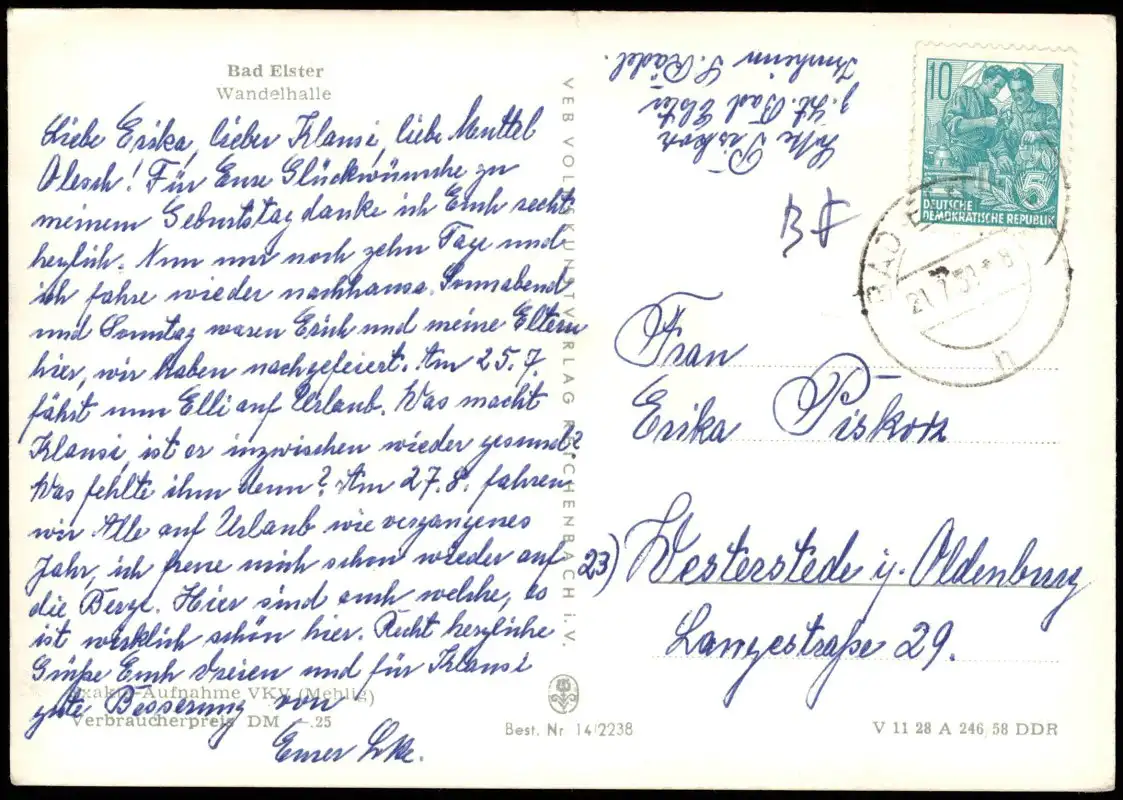 Bad Elster
Wandelhalle
Liebe Erika, lieber Klausi, liebe Muttel
Olesch! Für Eure Glückwünsche zu
meinem Geburtstag danke ich Euch recht
herzlich. Nun nur noch zehn Tage und
ich fahre wieder nachhause. Sonnabend
und Sonntag waren Erich und meine Eltern
hier, wir haben nachgefeiert. Am 25.7.
fährt nun Elli auf Urlaub. Was macht
Klausi, ist er inzwischen wieder gesund?
Was fehlte ihm denn? Am 27.8. fahren
wir Alle auf Urlaub wie vergangenes
Jahr, ich freue mich schon wieder auf
die Berge. Hier sind auch welche, es
ist wirklich schön hier. Recht herzliche
Grüße Euch dreien und für Klausi
gute Besserung von
Eurer Lke.
Exakta-Aufnahme VKV (Mehlig)
Verbraucherpreis DM -.25
VEB VOLKSKUNSTVERLAG REICHENBACH i. V.
Best. Nr 14/2238
V 11 28 A 246/58 DDR
Piskorz
z. Zt. Bad Elster
Kurheim S. Rädel.
10
5
DEUTSCHE
DEMOKRATISCHE REPUBLIK
BAD E
21.7.59
Frau
Erika Piskorz
23) Westerstede i/. Oldenburg
Langestraße 29.